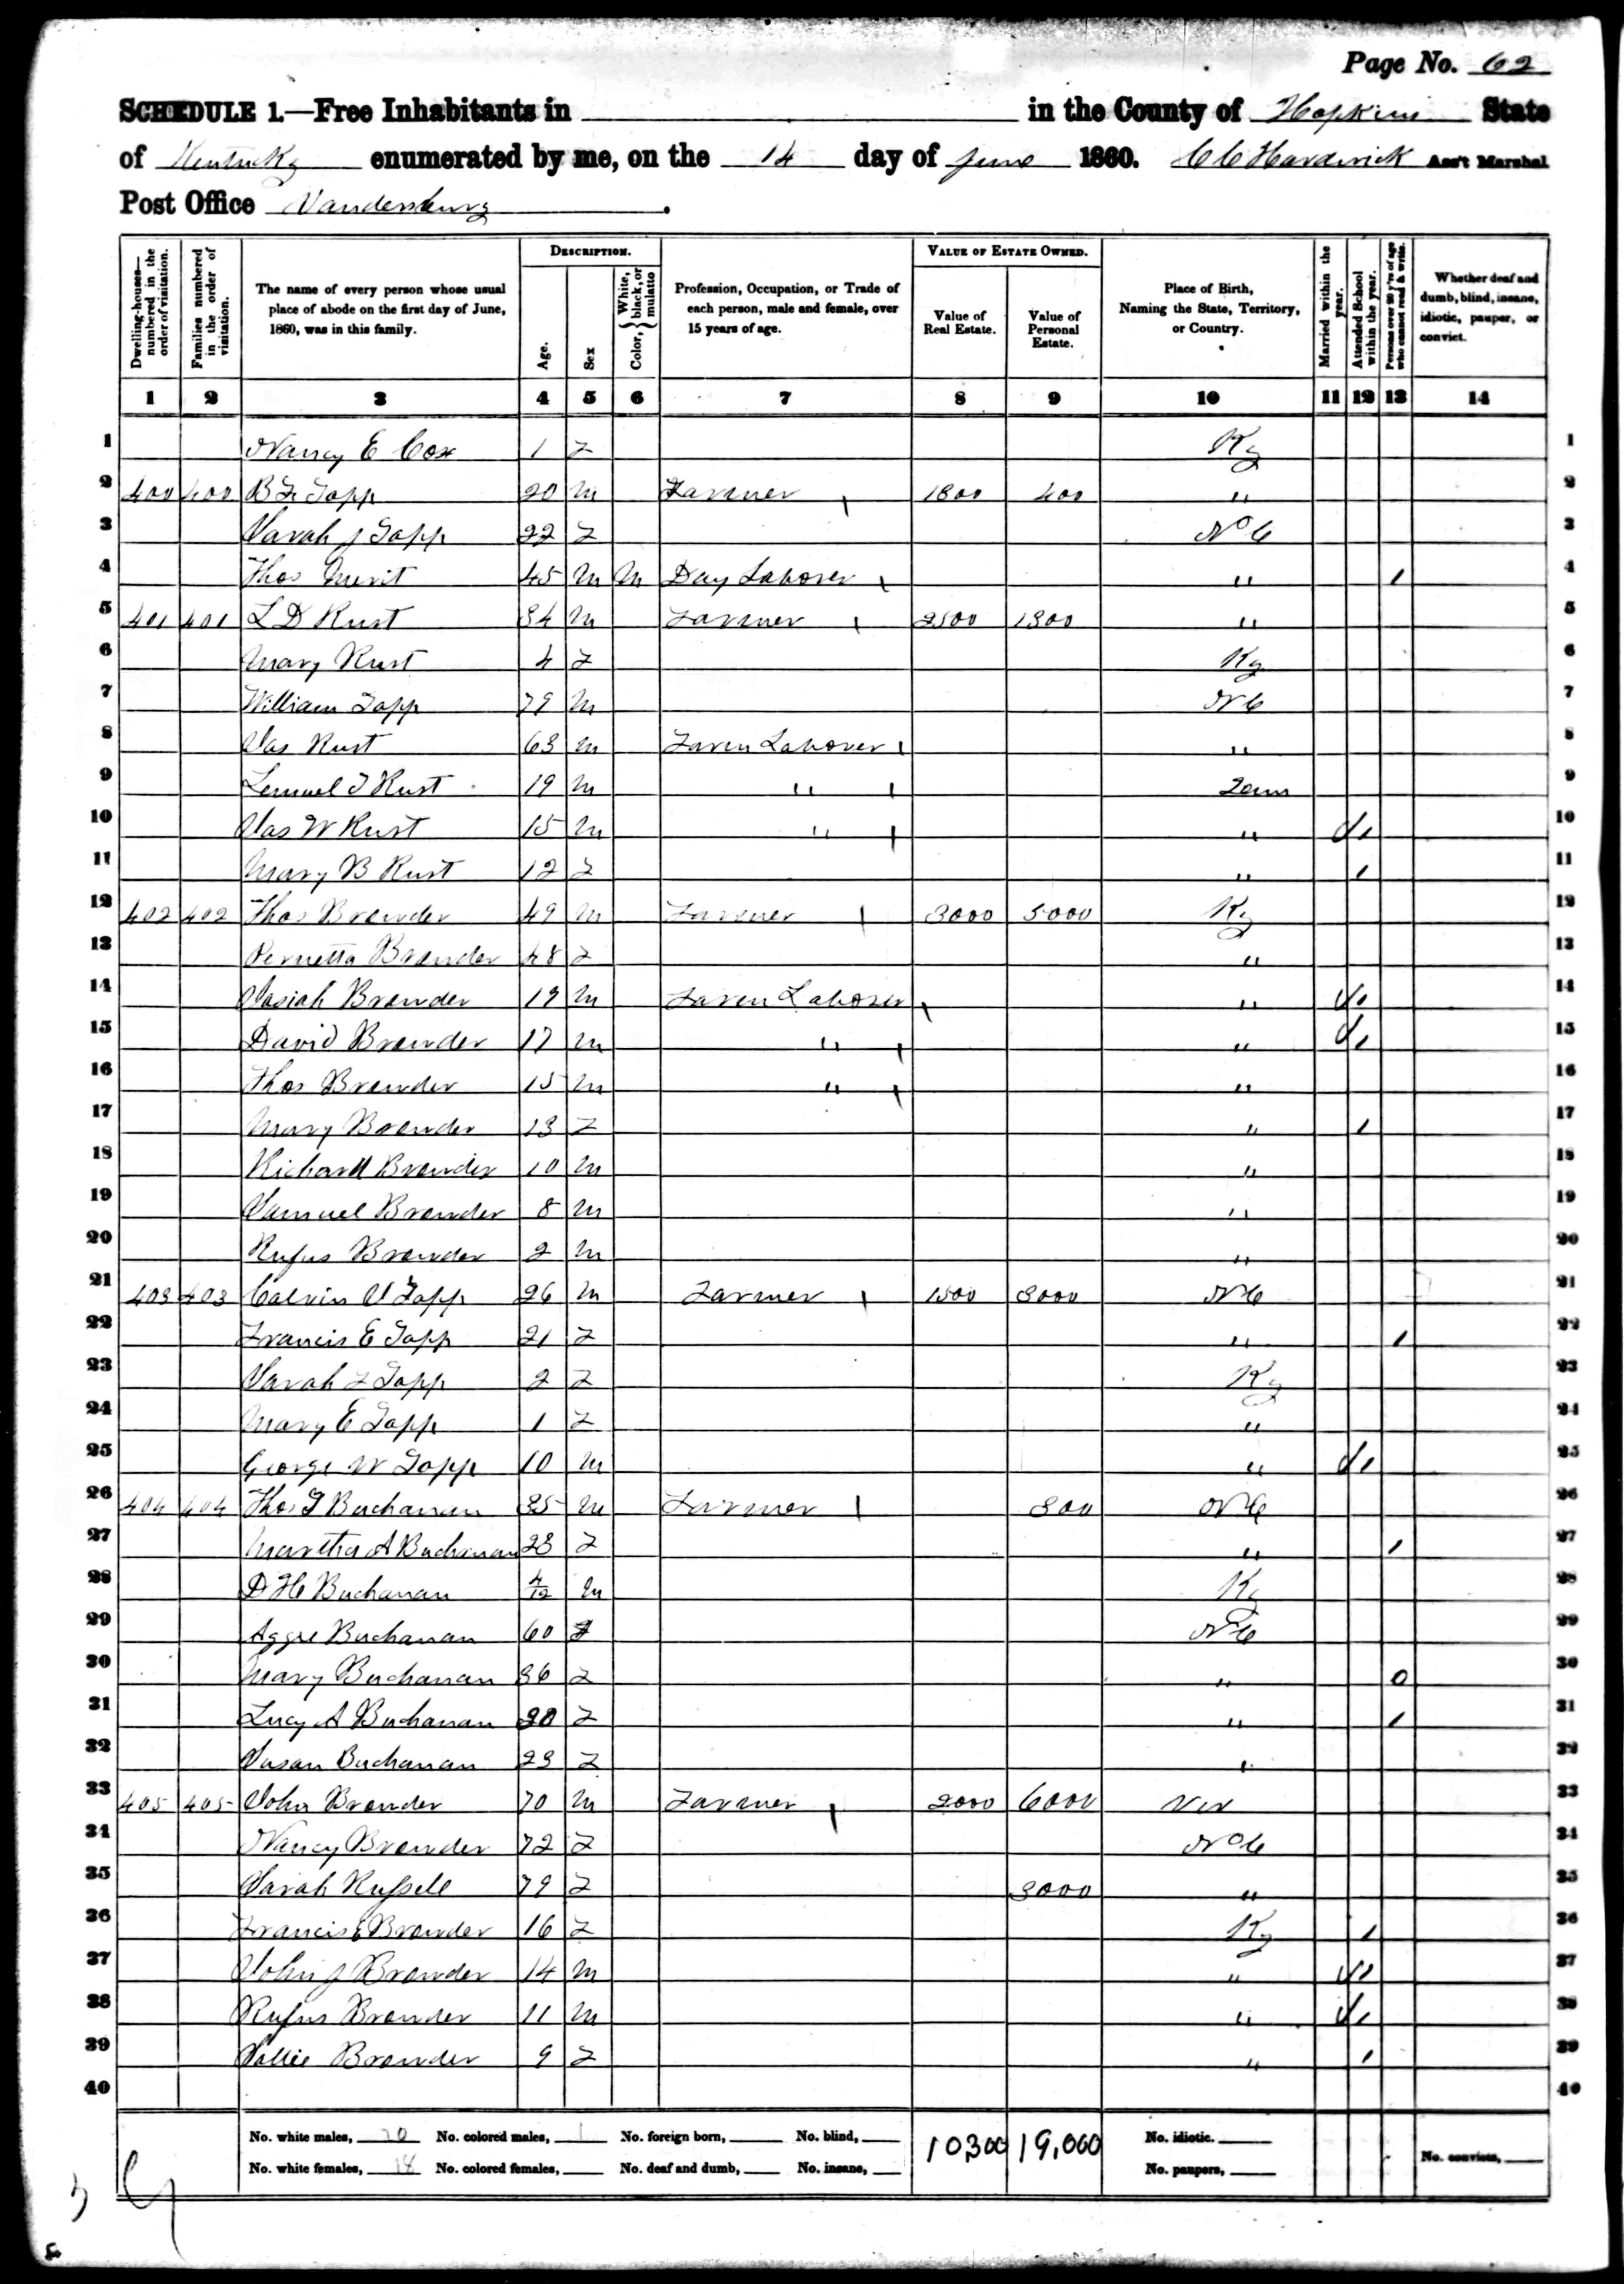 Page No. 62
SCHEDULE 1.—Free Inhabitants in in the County of Hopkins State
of Kentucky enumerated by me, on the 14 day of June 1860. C C Hardwick Ass't Marshal
Post Office Vandersburg .
Dwelling-houses—numbered in the order of visitation.
Families numbered in the order of visitation.
The name of every person whose usual place of abode on the first day of June, 1860, was in this family.
DESCRIPTION.
Age.
Sex
Color, White, black, or mulatto
Profession, Occupation, or Trade of each person, male and female, over 15 years of age.
VALUE OF ESTATE OWNED.
Value of Real Estate.
Value of Personal Estate.
Place of Birth, Naming the State, Territory, or Country.
Married within the year.
Attended School within the year.
Persons over 20 y'rs of age who cannot read & write.
Whether deaf and dumb, blind, insane, idiotic, pauper, or convict.
1 2 3 4 5 6 7 8 9 10 11 12 13 14
1 Nancy E Cox 1 F Ky 1
2 400 400 B F Tapp 20 M Farmer 1800 400 " 2
3 Sarah J Tapp 22 F N C 3
4 Thos 45 M M Day Laborer " / 4
5 401 401 L D Rust 34 M Farmer 2500 1300 " 5
6 Mary Rust 4 F Ky 6
7 William Tapp 79 M N C 7
8 Jas Rust 63 M Farm Laborer " 8
9 Lemuel T Rust 19 M " Tenn 9
10 Jas W Rust 15 M " " / 10
11 Mary B Rust 12 F " / 11
12 402 402 Thos Browder 49 M Farmer 3000 5000 Ky 12
13 Pernetta Browder 48 F " 13
14 Josiah Browder 19 M Farm Laborer " / 14
15 David Browder 17 M " " / 15
16 Thos Browder 15 M " " 16
17 Mary Browder 13 F " / 17
18 Richard Browder 10 M " 18
19 Samuel Browder 8 M " 19
20 Rufus Browder 2 M " 20
21 403 403 Calvin Tapp 26 M Farmer 1500 3000 N C 21
22 Francis E Tapp 21 F " / 22
23 Sarah F Tapp 2 F Ky 23
24 Mary E Tapp 1 F " 24
25 George W Tapp 10 M " / 25
26 404 404 Thos F Buchanan 35 M Farmer 300 N C 26
27 Martha A Buchanan 28 F " / 27
28 D H Buchanan 4/12 M Ky 28
29 Aggie Buchanan 60 F N C 29
30 Mary Buchanan 36 F " 0 30
31 Lucy A Buchanan F " / 31
32 Susan Buchanan 23 F " 32
33 405 405 John Browder 70 M Farmer 2000 6000 Vir 33
34 Nancy Browder 72 F N C 34
35 Sarah Russell 79 F 3000 " 35
36 Francis E Browder 16 F Ky / 36
37 John J Browder 14 M " / 37
38 Rufus Browder 11 M " / 38
39 Sallie Browder 9 F " / 39
40 40
No. white males, 20 No. colored males, 1 No. foreign born, No. blind, 10,300 19,000 No. idiotic.
No. white females, 18 No. colored females, No. deaf and dumb, No. insane, No. paupers, No. convicts,